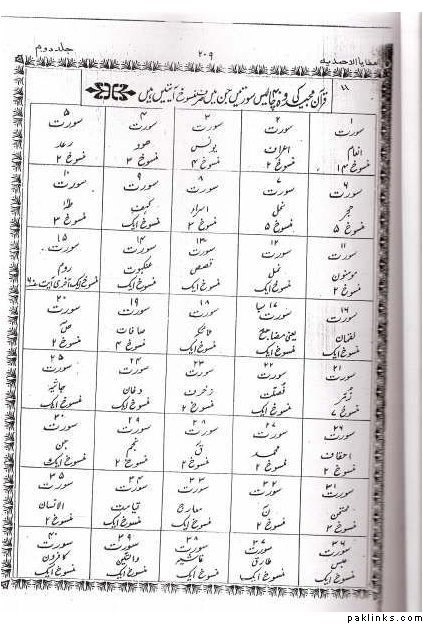 العطایا الاحمدیہ ۲۰۹ جلد دوم
۱۱
قرآن مجید کی وہ ۴۰ چالیس سورتیں جن میں صرف منسوخ آیتیں ہیں
۱ ۲ ۳ ۴ ۵
سورت سورت سورت سورت سورت
انعام اعراف یونس ھود رعد
منسوخ ۱۴ منسوخ ۲ منسوخ ۴ منسوخ ۳ منسوخ ۲
۶ ۷ ۸ ۹ ۱۰
سورت سورت سورت سورت سورت
حجر نحل اسراء کہف طٰہٰ
منسوخ ۵ منسوخ ۵ منسوخ ۳ منسوخ ایک منسوخ ۳
۱۱ ۱۲ ۱۳ ۱۴ ۱۵
سورت سورت سورت سورت سورت
مومنون نمل قصص عنکبوت روم
منسوخ ۲ منسوخ ایک منسوخ ایک منسوخ ایک منسوخ ایک آخری آیت ۶۰
۱۶ ۱۷ سبا ۱۸ ۱۹ ۲۰
سورت سورت سورت سورت سورت
لقمان یعنی مضاجع فاطر صافات ص
منسوخ ایک منسوخ ایک منسوخ ایک منسوخ ۴ منسوخ ۲
۲۱ ۲۲ ۲۳ ۲۴ ۲۵
سورت سورت سورت سورت سورت
زمر فصلت زخرف دخان جاثیہ
منسوخ ۷ منسوخ ایک منسوخ ۲ منسوخ ایک منسوخ ایک
۲۶ ۲۷ ۲۸ ۲۹ ۳۰
سورت سورت سورت سورت سورت
احقاف محمد ق نجم جن
منسوخ ۲ منسوخ ۲ منسوخ ۲ منسوخ ۲ منسوخ ایک
۳۱ ۳۲ ۳۳ ۳۴ ۳۵
سورت سورت سورت سورت سورت
ممتحن ن معارج قیامت الانسان
منسوخ ۳ منسوخ ۲ منسوخ ۲ منسوخ ایک منسوخ ۲
۳۶ ۳۷ ۳۸ ۳۹ ۴۰
سورت سورت سورت سورت سورت
عبس طارق غاشیہ والتین کافرون
منسوخ ایک منسوخ ایک منسوخ ایک منسوخ ایک منسوخ ایک
paklinks.com